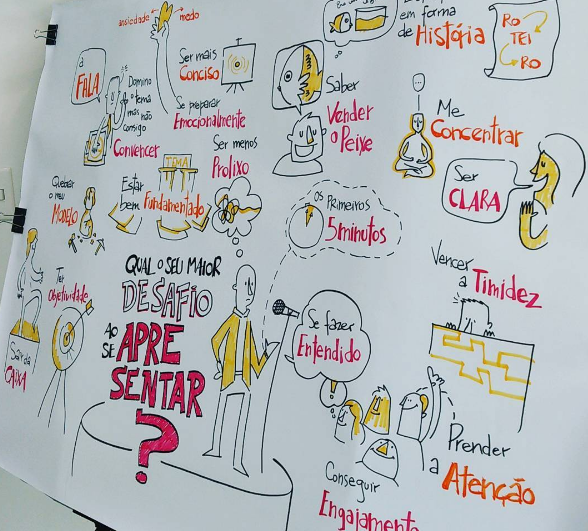 ansiedade
medo
a
FALA
Domino
o tema
mas não
consigo
Convencer
Ser mais
Conciso
Se preparar
Emocionalmente
em forma
de História
RO
TEI
RO
Saber
Vender
o Peixe
Me
Concentrar
TEMA
Ser menos
Prolixo
Quebrar
o meu
MODELO
Estar
bem Fundamentado
Ser
CLARA
Os Primeiros
5 minutos
Ter
Objetividade
QUAL O SEU MAIOR
DESAFIO
AO
SE APRE
SENTAR
?
Vencer
a Timidez
Se fazer
Entendido
Sair da
CAIXA
Prender
a Atenção
Conseguir
Engajamento